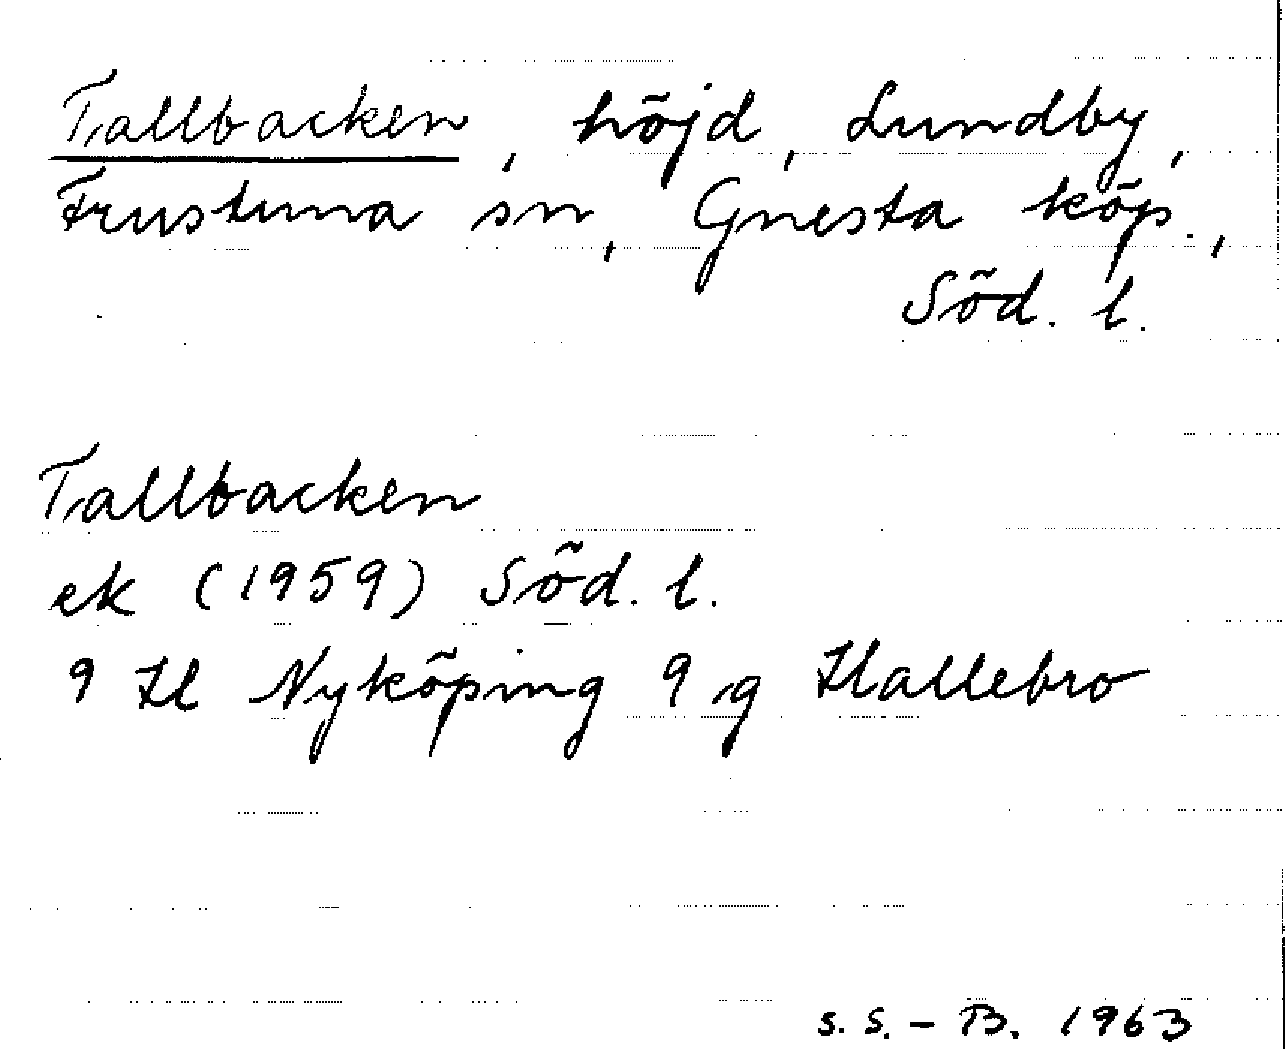 Tallbacken, höjd, Lundby,
Frustuna sn, Gnesta köp.,
Söd. l.
Tallbacken
ek (1959) Söd. l.
9 H Nyköping 9 g Hållebro
S. S. - B. 1963